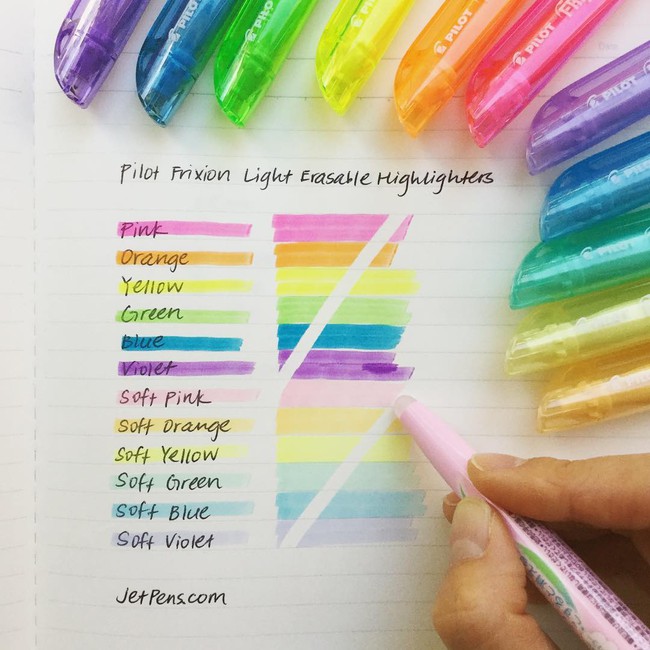 PILOT
PILOT
PILOT
PILOT
PILOT
PILOT
PILOT
PILOT
Pilot Frixion Light Erasable Highlighters
Pink
Orange
Yellow
Green
Blue
Violet
Soft Pink
Soft Orange
Soft Yellow
Soft Green
Soft Blue
Soft Violet
JetPens.com